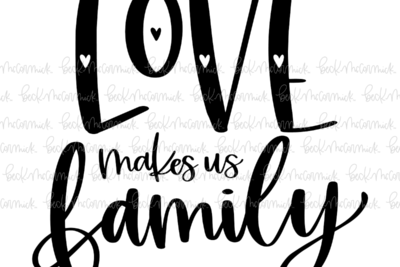 LOVE
makes us
family